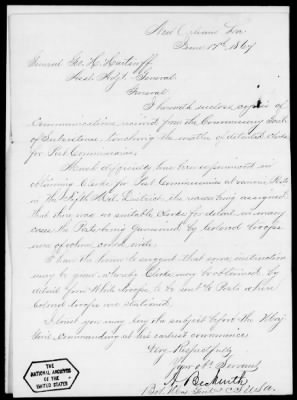 New Orleans La
June 17th 1867
General Geo. L. Hartsuff
Asst. Adjt. General
General
I herewith enclose copies of
communications received from the Commissary Genl.
of Subsistence, touching the matter of detailed clerks
for Post Commissaries.
Much difficulty has been experienced in
obtaining Clerks for Post Commissaries at various Posts
in the Fifth Mil. District, the reason being assigned
that there was no suitable Clerks for detail in many
cases the Posts being Garrisoned by Colored Troops
some of whom could write.
I have the honor to suggest that some instruction
may be given whereby Clerks may be obtained by
detail from White troops to be sent to Posts where
Colored troops are stationed.
I trust you may lay the subject before the Maj
Genl. commanding at his earliest convenience.
Very Respectfully
Your Obt. Servant
A. Beckwith
THE NATIONAL ARCHIVES
OF THE
UNITED STATES